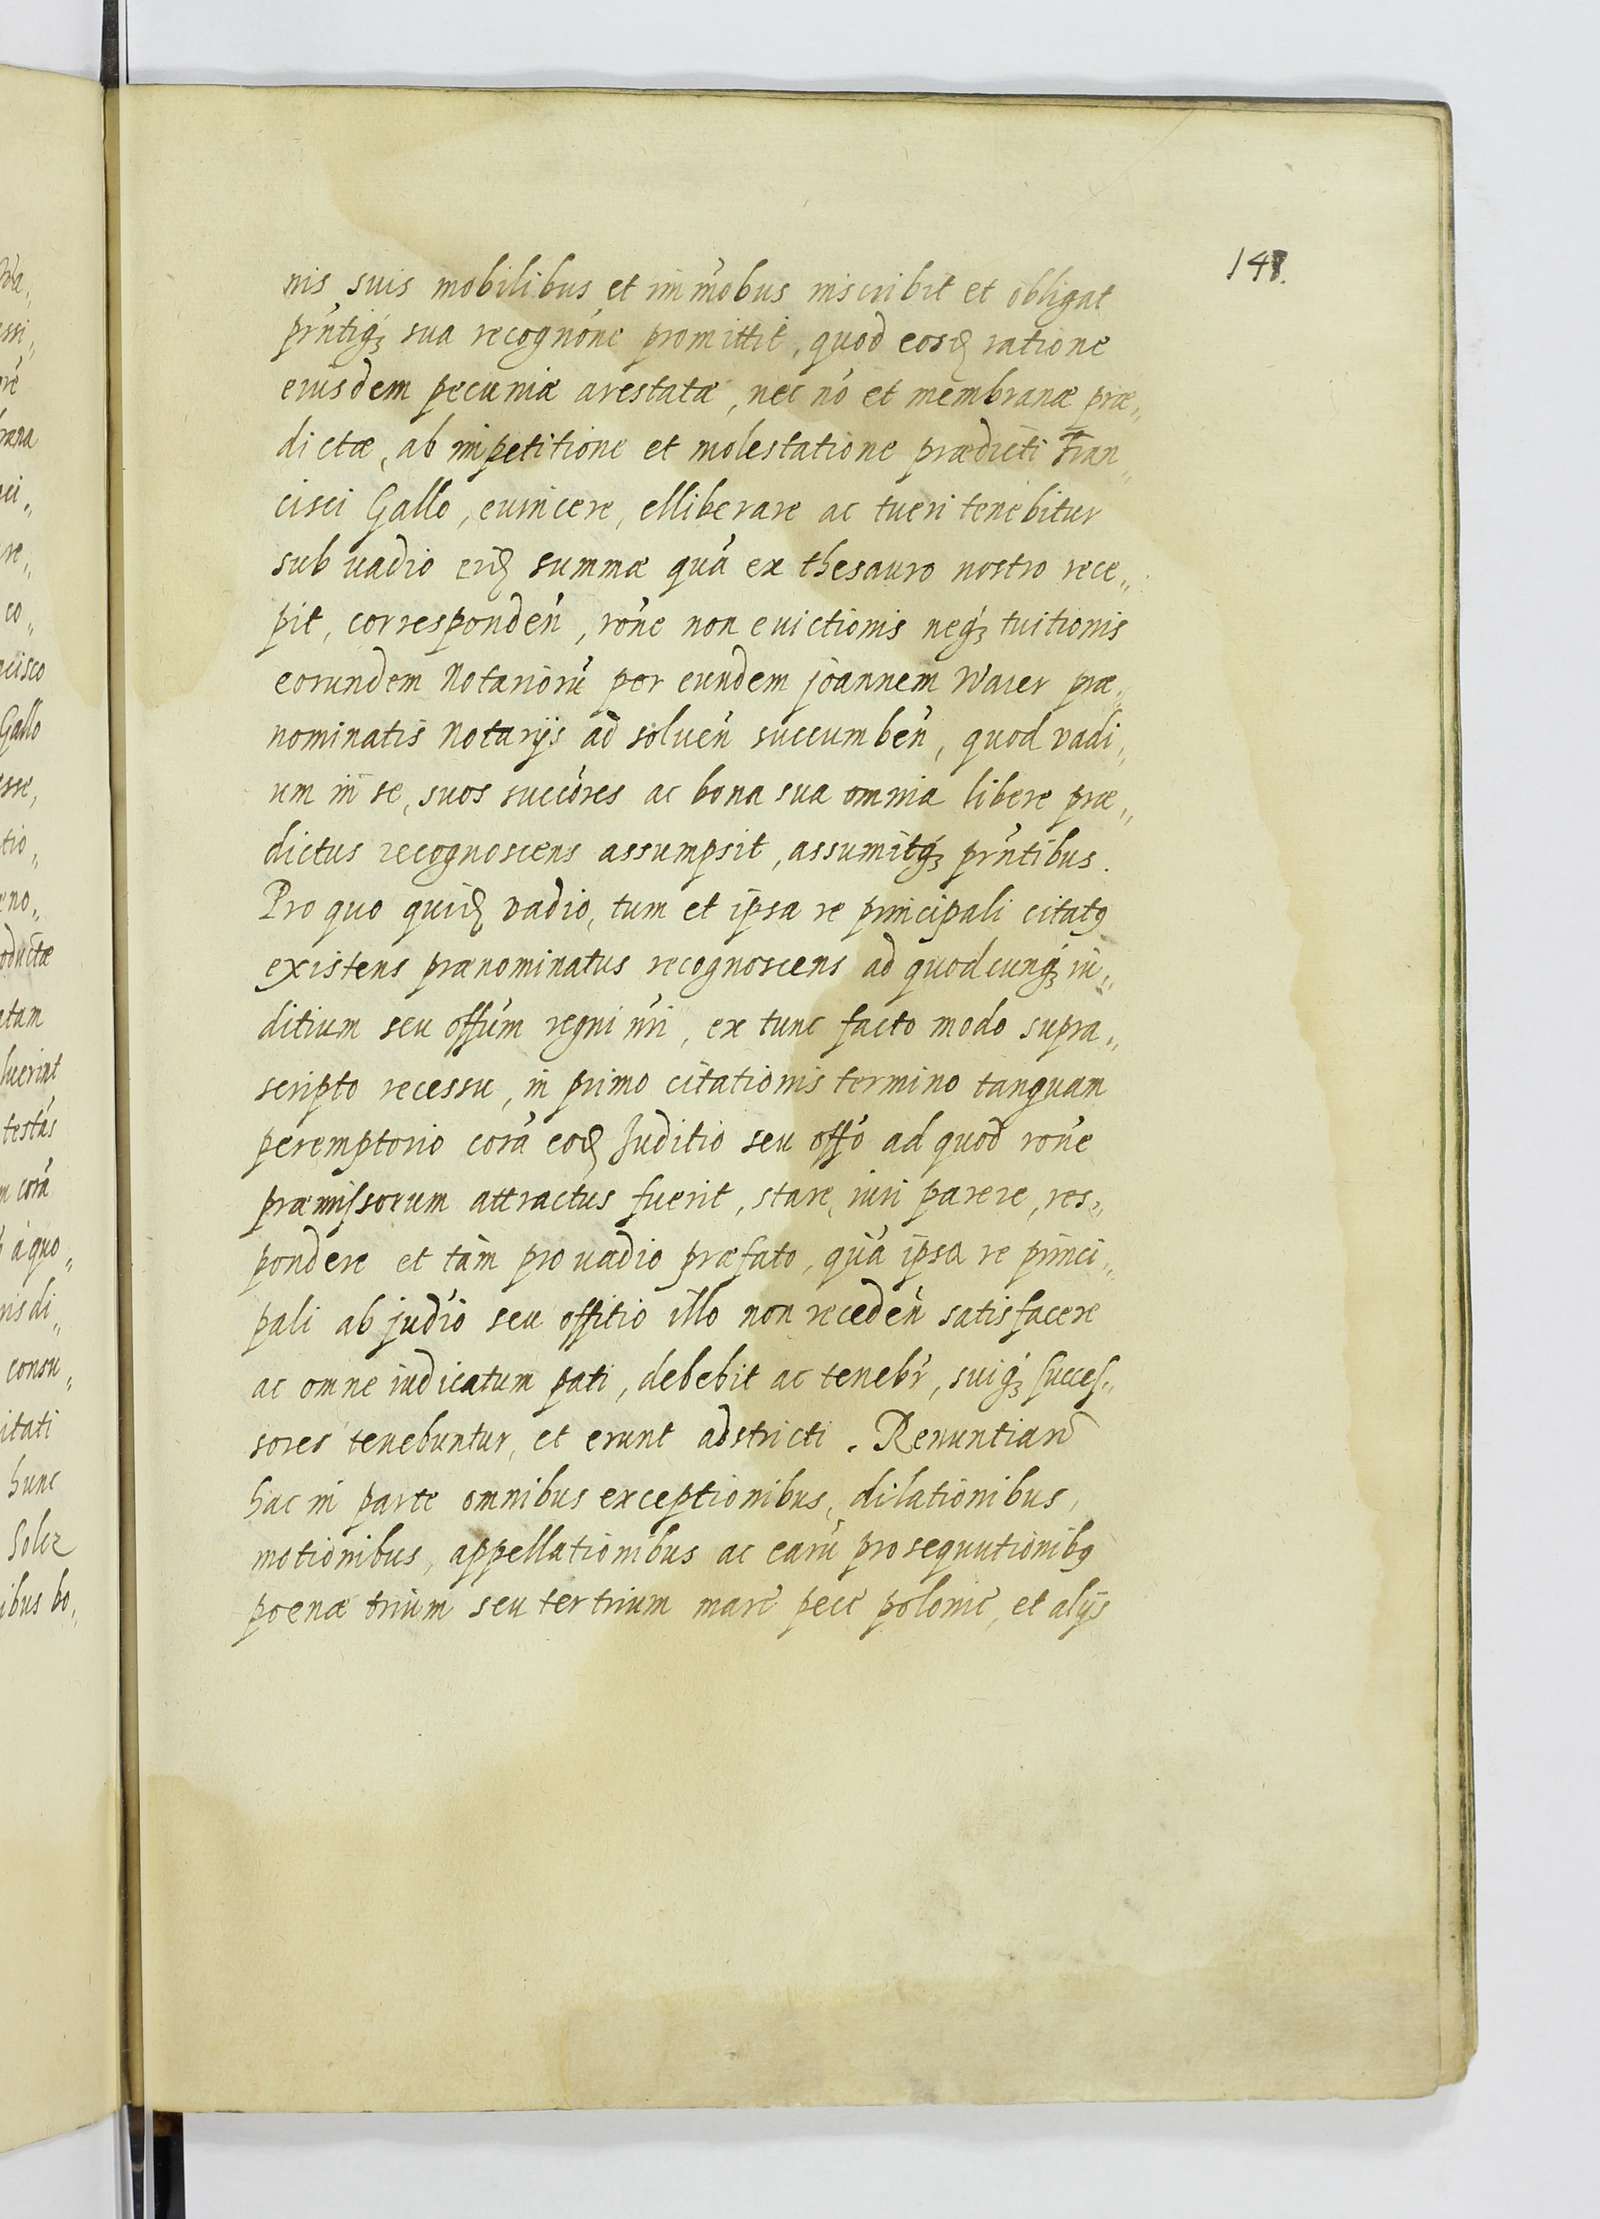 148.
nis suis mobilibus et im̃obus inscribit et obligat
prñtiq₃ sua recognõne promittit, quod eosꝺ ratione
eiusdem pecuniæ arestatæ, nec nõ et membranæ præ„
dictæ, ab impetitione et molestatione prædicti Fran„
cisci Gallo, euincere, elliberare ac tueri tenebitur
sub vadio eiꝺ summæ quã ex thesauro nostro rece„
pit, correspondeñ, rõne non evictionis neq₃ tuitionis
eorundem Notariorũ per eundem joannem Waier præ„
nominatis Notarijs ad solueñ succumbeñ, quod vadi„
um in se, suos succõres ac bona sua omnia libere præ„
dictus recognoscens assumpsit, assumitq₃ prñtibus.
Pro quo quiꝺ vadio, tum et ipsa re principali citatꝰ
existens prænominatus recognoscens ad quodcunq₃ iu„
ditium seu offũm regni nri, ex tunc facto modo supra„
scripto recessu, in primo citationis termino tanquam
peremptorio corã eoꝺ Juditio seu offõ ad quod rõne
præmissorum attractus fuerit, stare, iuri parere, res„
pondere et tàm pro vadio præfato, quà ipsa re princi„
pali ab judio seu offitio illo non recedeñ satisfacere
ac omne iudicatum pati, debebit ac tenebr, suiq₃ succes„
sores tenebuntur, et erunt adstricti. Renuntiañ
hac in parte omnibus exceptionibus, dilationibus,
motionibus, appellationibus ac earũ prosequutionibꝰ
poenæ trium seu ter trium marc pecc polonic, et alijs
ssi„
rana
co„
ncisco
Gallo
esse,
tio„
oductæ
atam
luerint
testus
corã
à quo„
nis di„
consu„
itati
hunc
ibus bo„